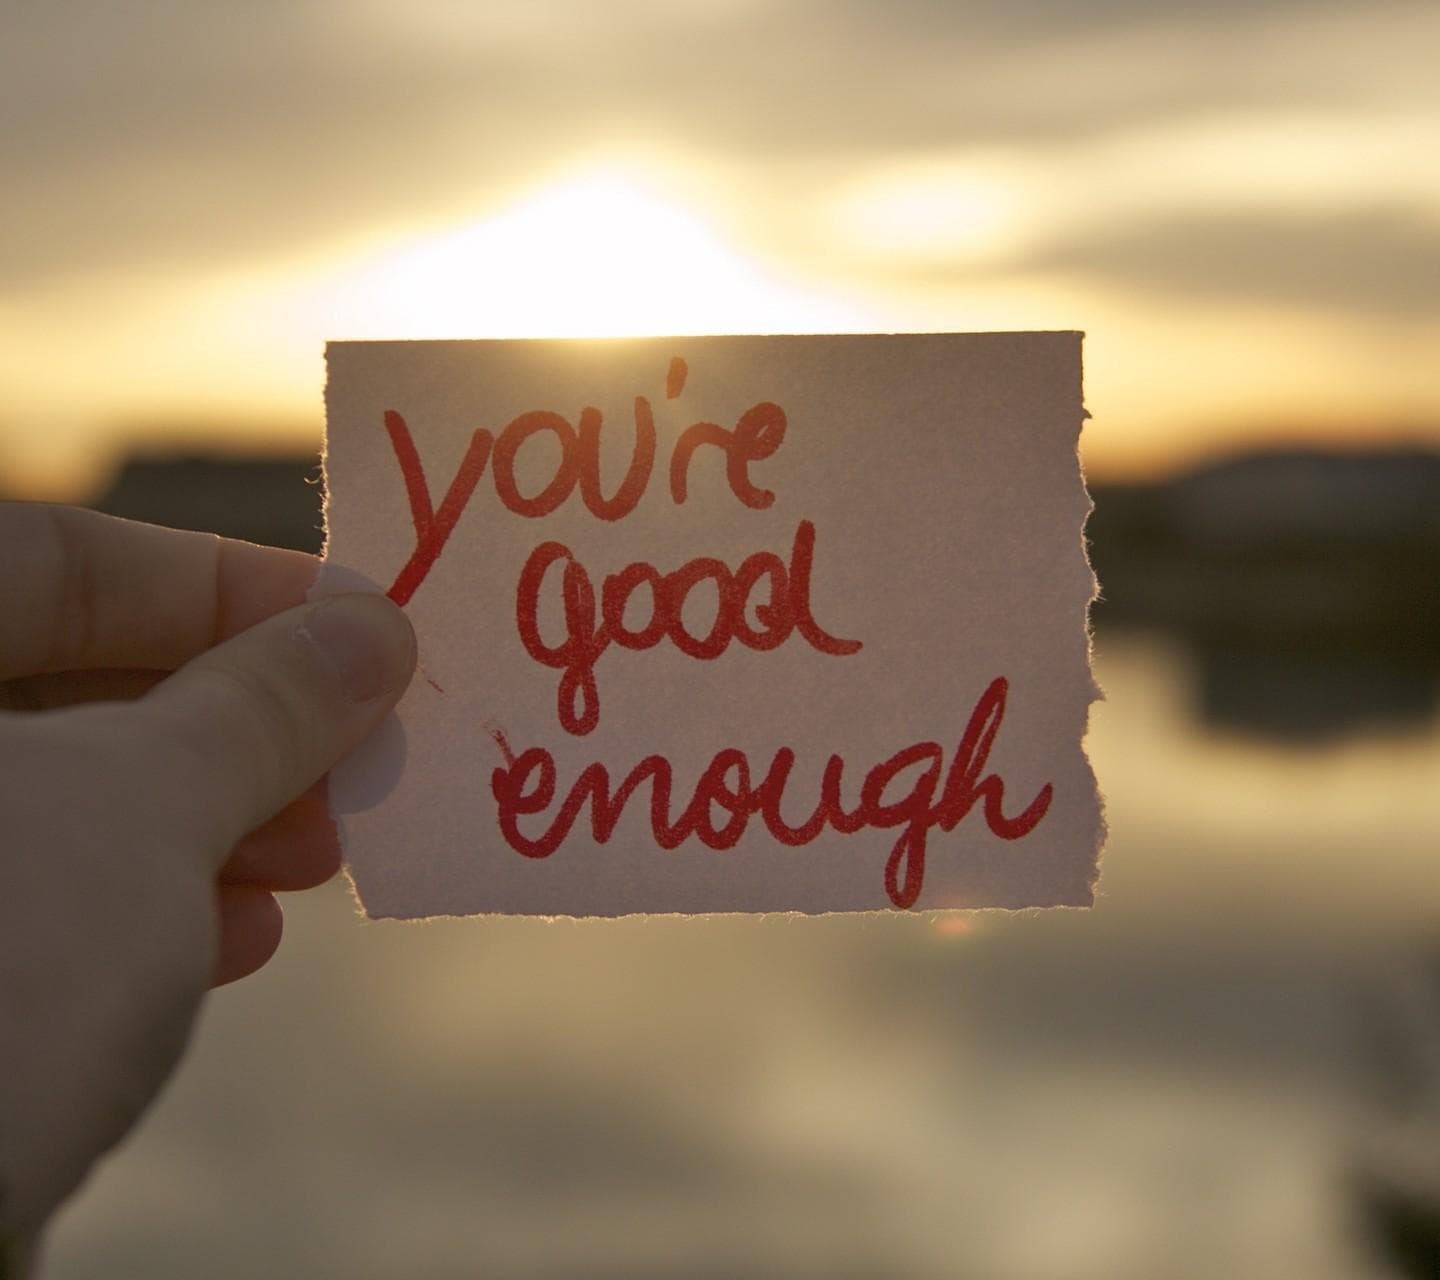 you're
good
enough